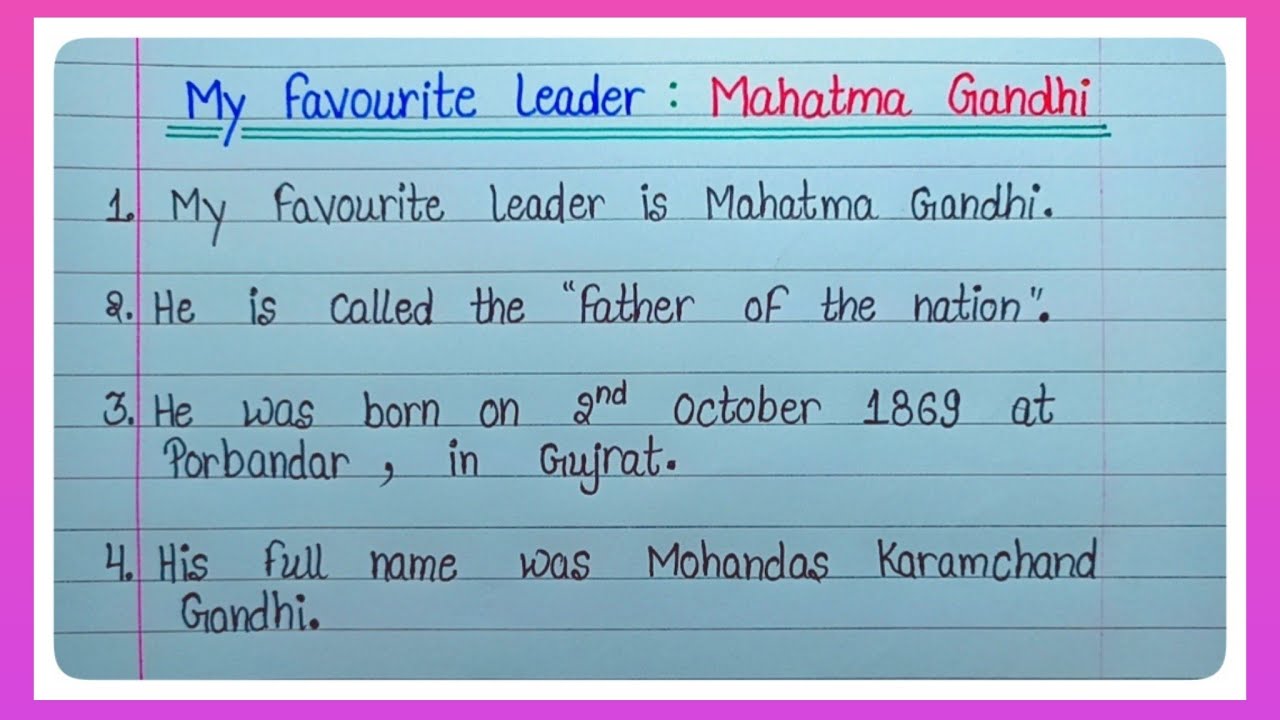 My favourite leader : Mahatma Gandhi
1. My favourite leader is Mahatma Gandhi.
2. He is called the "father of the nation".
3. He was born on 2nd october 1869 at
Porbandar , in Gujrat.
4. His full name was Mohandas Karamchand
Gandhi.